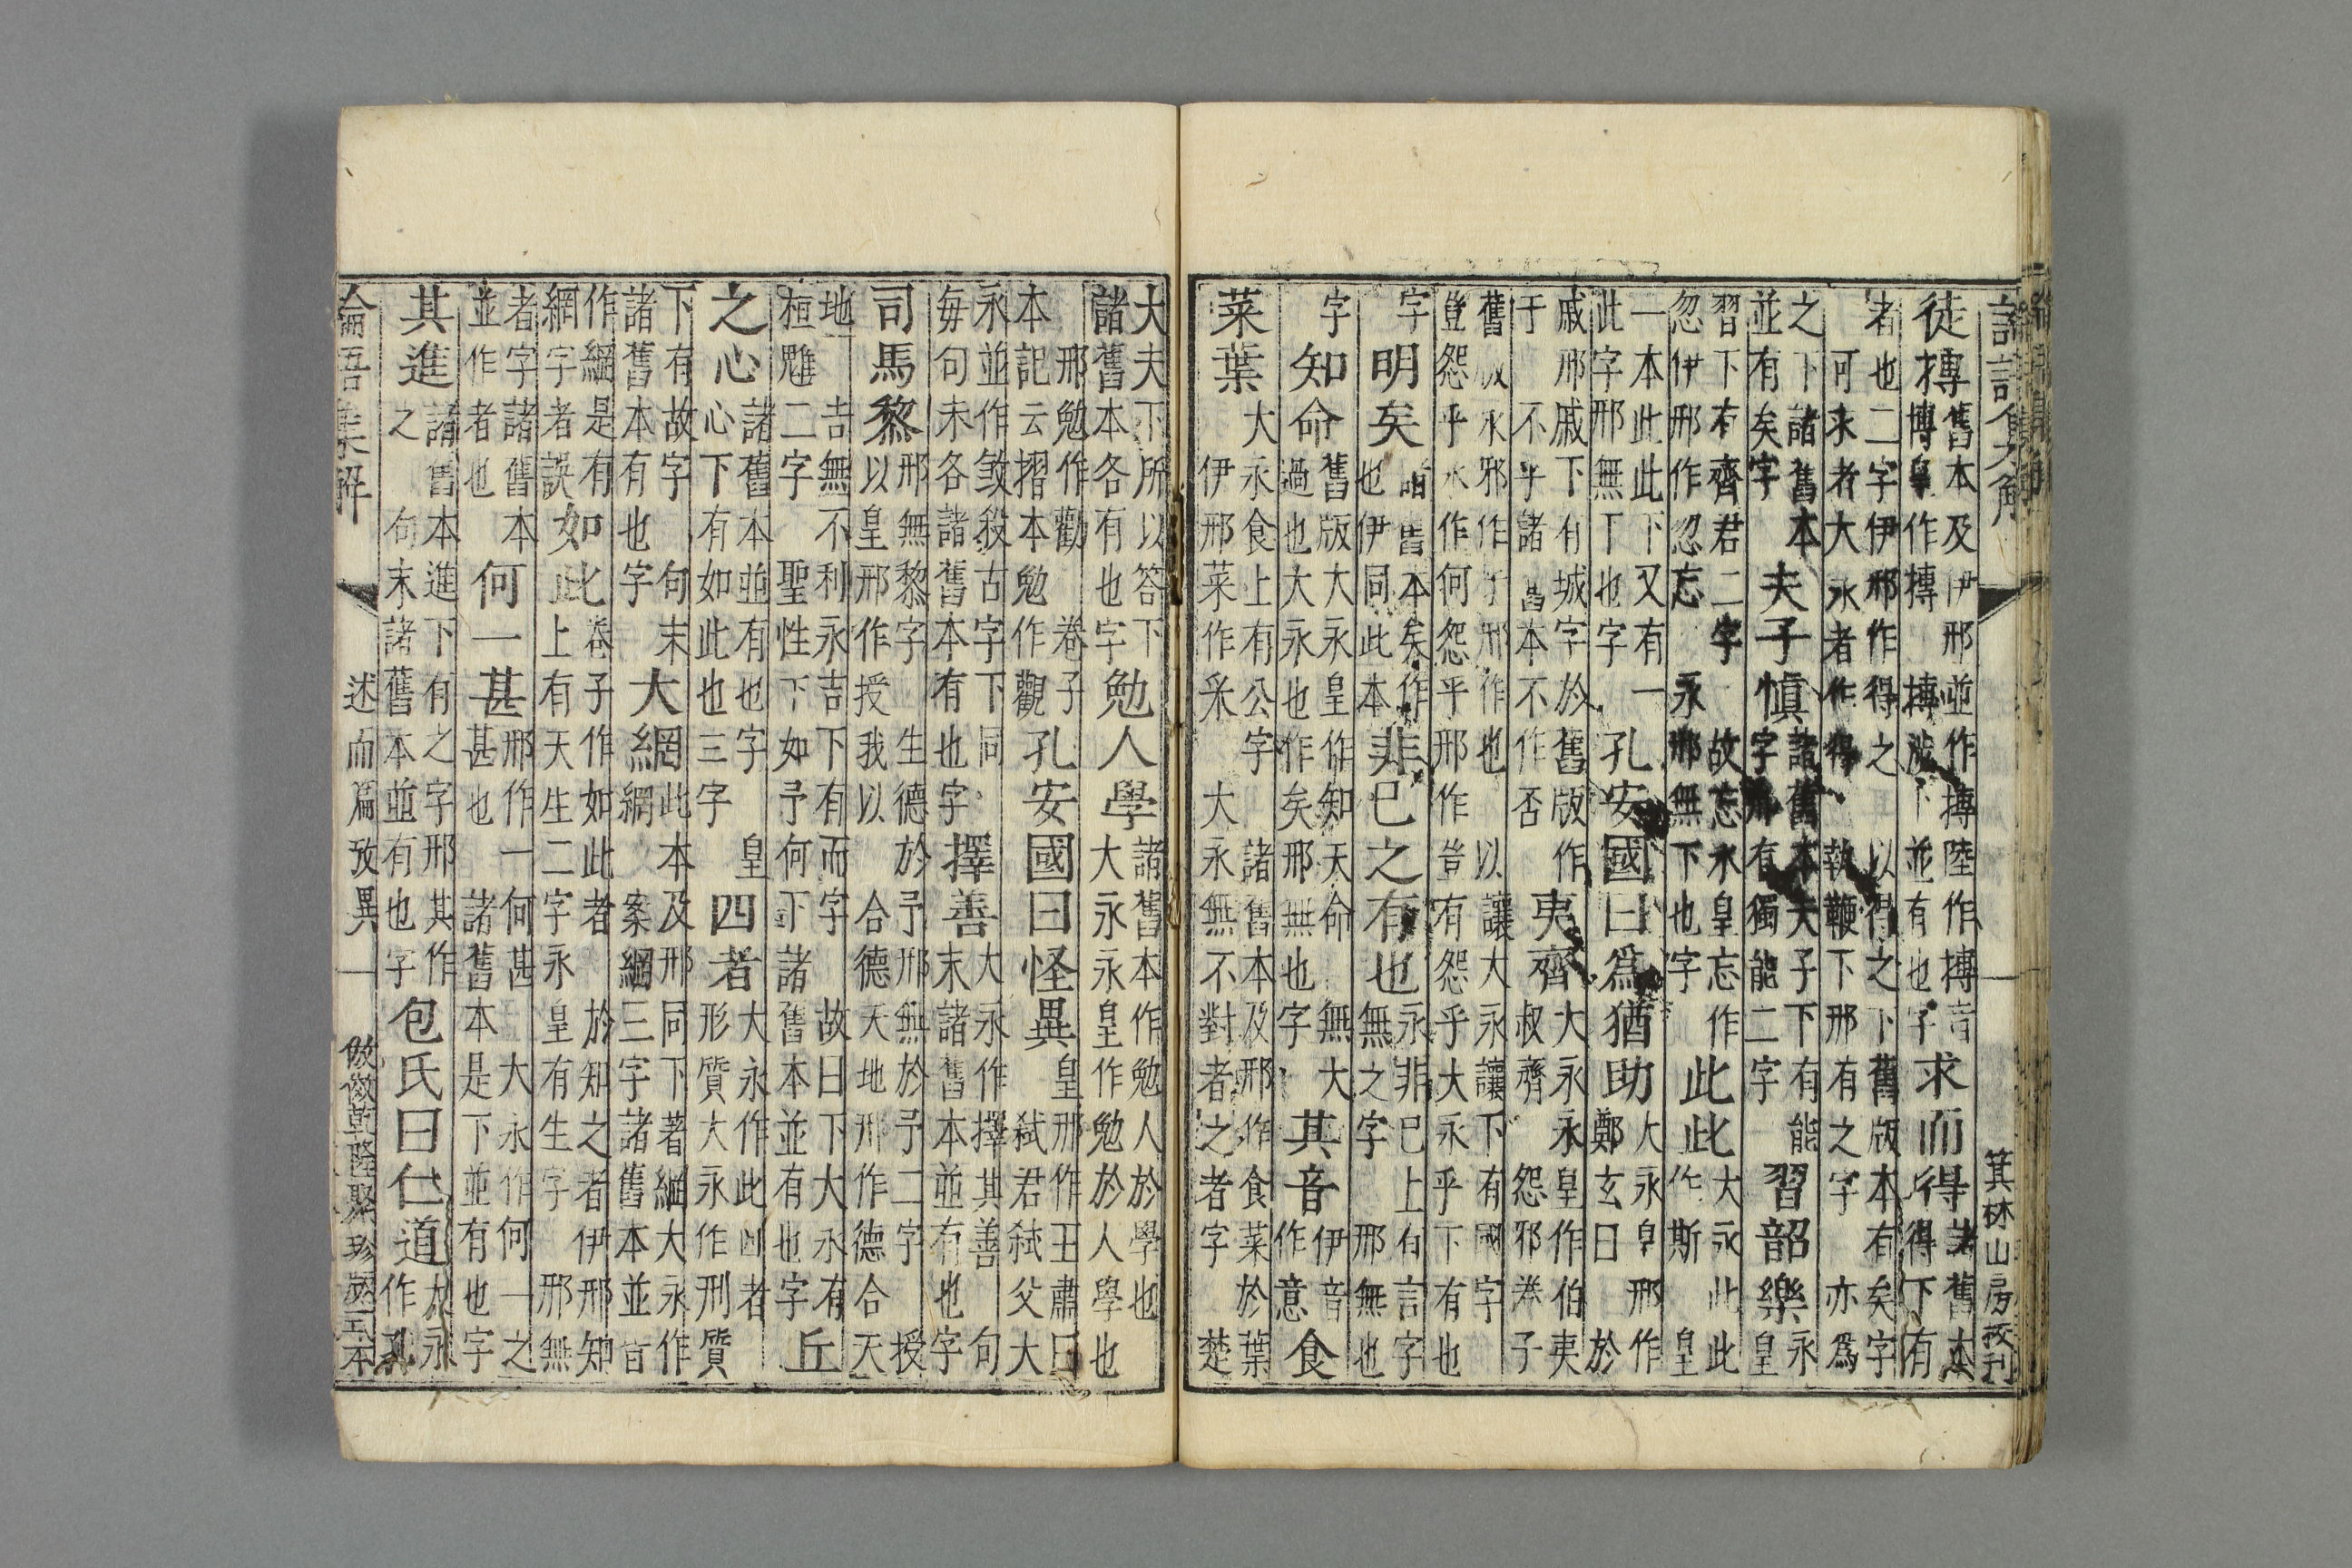 論語集解　一　箕林山房校刊
徒搏　舊本及伊邢並作搏陸作搏音　求而得　諸舊本
博皇作摶　搏　下並有也字　得下有
者也二字伊邢作得之　以得之下舊版本有矣字
可求者大永者作得　執鞭下邢有之字　亦爲
之下諸舊本　夫子愼　諸舊本夫子下有能　習韶樂　永
並有矣字　字邢有獨能二字　皇
習下有齊君二字　故忘永皇忘作　此此　大永此此
忽伊邢作忽忘　永邢無下也字　作斯　皇
一本此此下又有一　孔安國曰爲猶助　大永皇邢作
此字邢無下也字　鄭玄曰　於
戚邢戚下有城字於舊版作　夷齊　大永永皇作伯夷
于　不乎諸舊本不作否　叔齊　怨邪卷子
舊版永邪作于邢作也　以讓大永讓下有國字
豈怨乎永作何怨乎邢作豈有怨乎大永乎下有也
字　明矣　諸舊本矣作　非已之有也　永非已上有言字
也伊同此本　無之字　邢無也
字　知命　舊版大永皇作知天命　無大　其音　伊音　食
過也大永也作矣邢無也字　作意
菜葉　大永食上有公字　諸舊本及邢作食菜於葉
伊邢菜作采　大永無不對者之者字　楚
大夫下所以答下　勉人學　諸舊本作勉人於學也
諸舊本各有也字　大永永皇作勉於人學也
邢勉作勸　卷子　孔安國曰怪異　皇邢作王肅曰
本記云摺本勉作觀　弑君弑父大
永並作敓敓古字下同　擇善　大永作擇其善　句
每句未各諸舊本有也字　末諸舊本並有也字
司馬黎　邢無黎字　生德於予邢無於予二字　授
以皇邢作授我以　合德天地邢作德合天
地　吉無不利永吉下有而字　故曰下大永有　丘
桓魋二字　聖性下如予何下諸舊本並有也字
之心　諸舊本並有也字　皇　四者　大永作此四者
心下有如此也三字　形質大永作刑質
下有故字　句末　大網　此本及邢同下著網大永作
諸舊本有也字　網　案網三字諸舊本並首
作網是有　如此　卷子作如此者　於知之者伊邢知
網字者誤　上有天生二字永皇有生字　邢無
者字諸舊本　何一甚　邢作一何甚　大永作何一之
並作者也　甚也　諸舊本是下並有也字
其進　諸舊本進下有之字邢其作　包氏曰仁道　大永
之　句末諸舊本並有也字　作孔
論吾集解　述而篇攷異　一